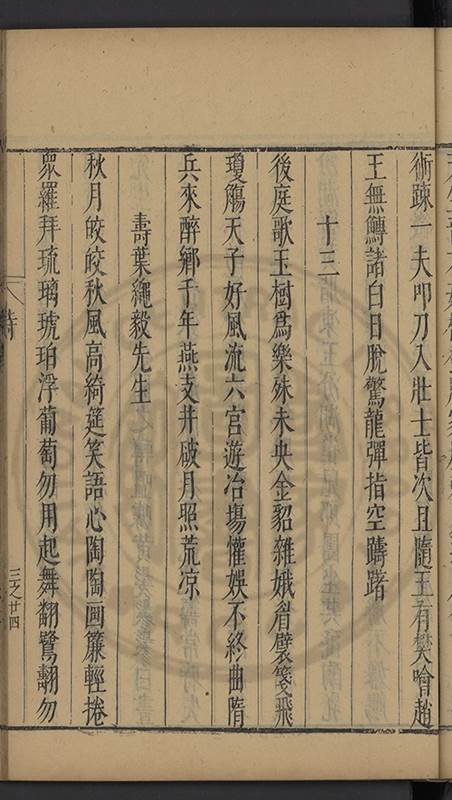 術疎一夫叩刀入壯士皆次且隨王有樊噲趙
王無鱄諸白日脫驚龍彈指空躊躇
十三
後庭歌玉樹爲樂殊未央金貂雜娥眉襞箋飛
瓊觴天子好風流六宮遊冶場懽娛不終曲隋
兵來醉鄉千年燕支井破月照荒凉
壽葉繩毅先生
秋月皎皎秋風高綺筵笑語心陶陶画簾輕捲
衆羅拜琉璃琥珀浮葡萄勿用起舞翻鷺翿勿
詩
三之廿四